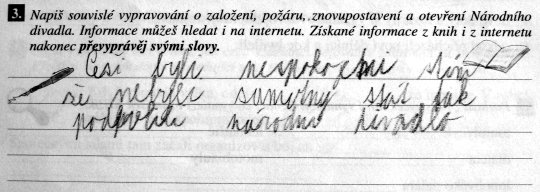 3. Napiš souvislé vypravování o založení, požáru, znovupostavení a otevření Národního
divadla. Informace můžeš hledat i na internetu. Získané informace z knih i z internetu
nakonec převyprávěj svými slovy.
Češi byli nespokojeni stím
že nebyli samotný stát tak
podpolili národní divadlo